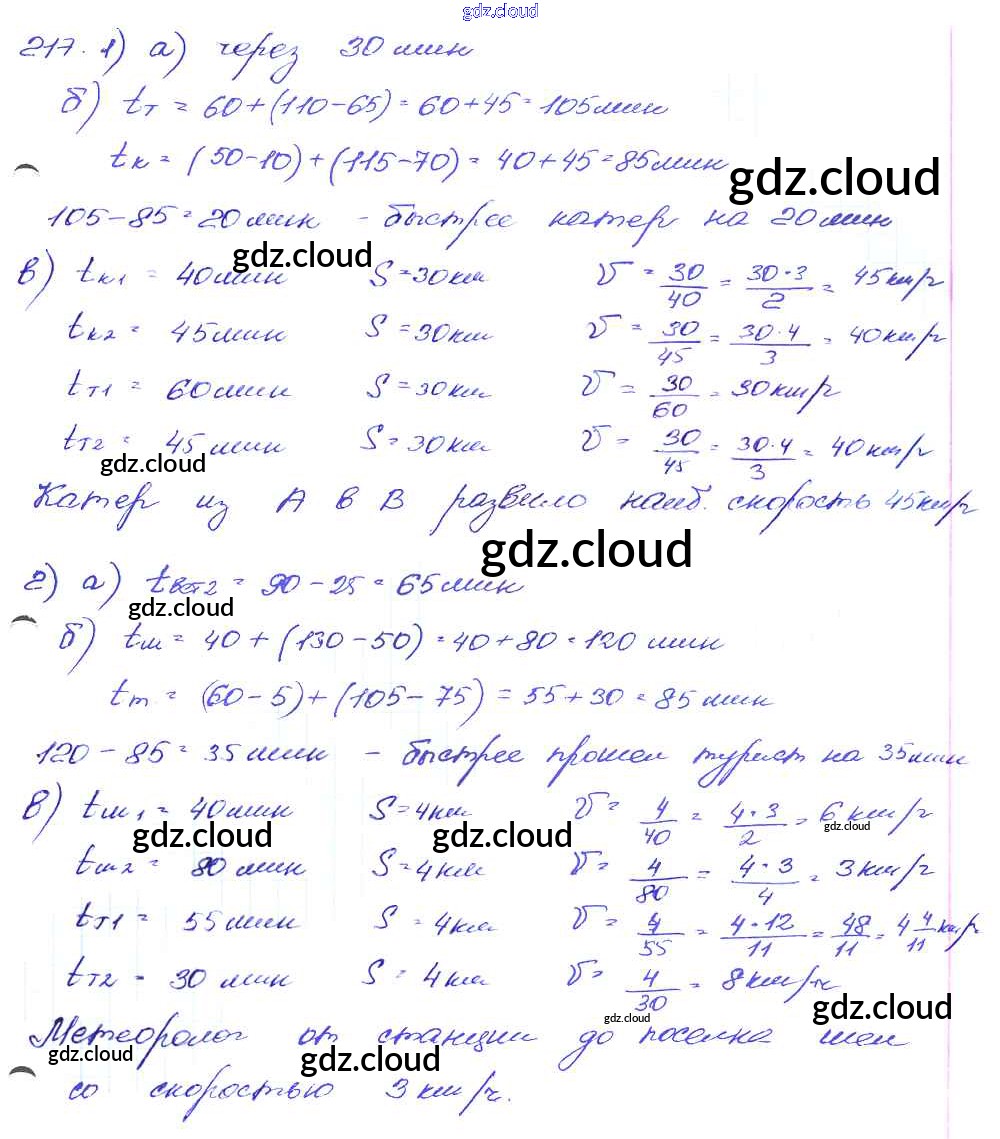 gdz.cloud
217. 1) а) через 30 мин
б) tт = 60+(110-65) = 60+45 = 105 мин
tк = (50-10)+(115-70) = 40+45 = 85 мин
gdz.cloud
105-85 = 20 мин - быстрее катер на 20 мин
gdz.cloud
в) tк1 = 40 мин S = 30 км V = 30/40 = 30·3/2 = 45 км/г
tк2 = 45 мин S = 30 км V = 30/45 = 30·4/3 = 40 км/г
tт1 = 60 мин S = 30 км V = 30/60 = 30 км/г
tт2 = 45 мин S = 30 км V = 30/45 = 30·4/3 = 40 км/г
gdz.cloud
Катер из А в В развило наиб. скорость 45 км/г
gdz.cloud
2) а) = 90 - 25 = 65 мин
gdz.cloud
б) tм = 40 + (130-50) = 40 + 80 = 120 мин
tт = (60-5)+(105-75) = 55+30 = 85 мин
120 - 85 = 35 мин - быстрее прошел турист на 35 мин
в) tм1 = 40 мин S = 4 км V = 4/40 = 4·3/2 = 6 км/г
gdz.cloud gdz.cloud gdz.cloud
tм2 = 80 мин S = 4 км V = 4/80 = 4·3/4 = 3 км/г
tт1 = 55 мин S = 4 км V = 4/55 = 4·12/11 = 48/11 = 4 4/11 км/г
tт2 = 30 мин S = 4 км V = 4/30 = 8 км/г
gdz.cloud
gdz.cloud
Метеоролог от станции до поселка шел
gdz.cloud
gdz.cloud
со скоростью 3 км/г.